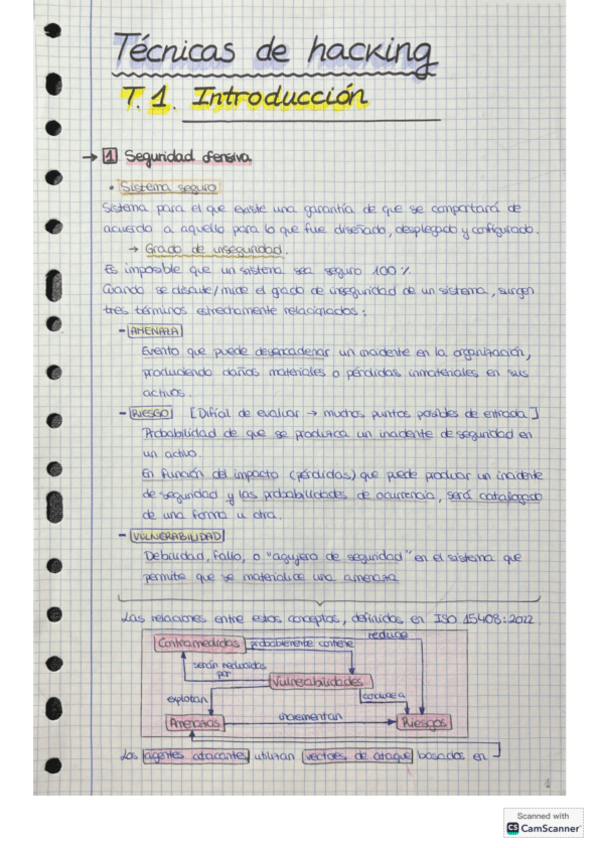 Técnicas de hacking
T.1. Introducción
→ 1 Seguridad ofensiva.
• Sistema seguro
Sistema para el que existe una garantía de que se comportará de
acuerdo a aquello para lo que fue diseñado, desplegado y configurado.
→ Grado de inseguridad.
Es imposible que un sistema sea seguro 100%
Cuando se discute/mide el grado de inseguridad de un sistema, surgen
tres términos estrechamente relacionados:
- AMENAZA
Evento que puede desencadenar un incidente en la organización,
produciendo daños materiales o pérdidas inmateriales en sus
activos.
- RIESGO [Difícil de evaluar → muchos puntos posibles de entrada]
Probabilidad de que se produzca un incidente de seguridad en
un activo.
En función del impacto (pérdidas) que puede producir un incidente
de seguridad y las probabilidades de ocurrencia, será catalogado
de una forma u otra.
- VULNERABILIDAD
Debilidad, fallo, o "agujero de seguridad" en el sistema que
permite que se materialice una amenaza
Las relaciones entre estos conceptos, definidos en ISO 15408:2022
Contramedidas probablemente contiene reduce
serán reducidas por
Vulnerabilidades
explotan conduce a
Amenazas incrementan Riesgos
Los agentes atacantes utilizan vectores de ataque basados en
1
Scanned with
CS CamScanner